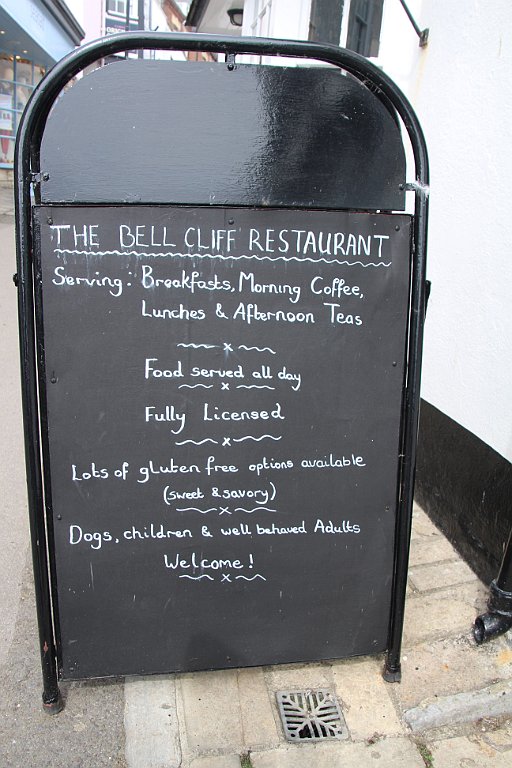 THE BELL CLIFF RESTAURANT
Serving. Breakfasts, Morning Coffee,
Lunches & Afternoon Teas
Food served all day
Fully Licensed
Lots of gluten free options available
(sweet & savory)
Dogs, children & well behaved Adults
Welcome!